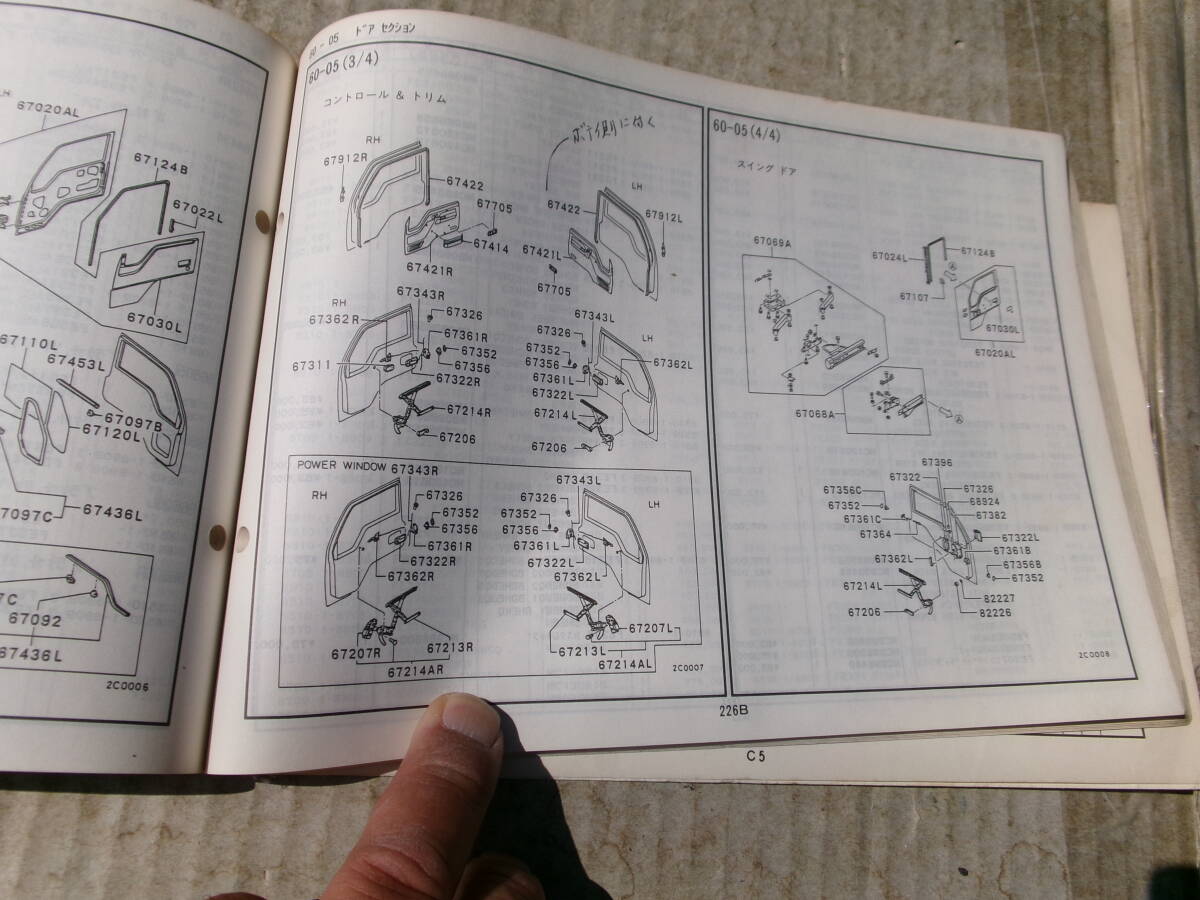 LH
67020AL
67124B
67022L
67030L
67110L
67453L
67097B
67120L
67436L
67092
67436L
2C0006
60-05 ドア セクション
60-05(3/4)
コントロール & トリム
ボデー側に付く
RH
67912R
67422
67705
67414
67421R
LH
67422
67912L
67421L
67705
67343R
RH
67362R
67326
67361R
67352
67356
67311
67322R
67214R
67206
67343L
67326
LH
67352
67356
67362L
67361L
67322L
67214L
67206
POWER WINDOW
67343R
RH
67326
67352
67356
67361R
67322R
67362R
67207R
67213R
67214AR
67343L
67326
LH
67352
67356
67361L
67322L
67362L
67207L
67213L
67214AL
2C0007
60-05(4/4)
スイング ドア
67069A
67024L
67124B
A
67107
67030L
67020AL
67068A
A
67396
67322
67356C
67326
67352
68924
67361C
67382
67364
67322L
67361B
67362L
67356B
67214L
67352
67206
82227
82226
2C0008
226B
C5